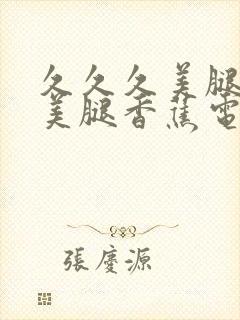 久久久美腿
美腿香蕉電
張慶源